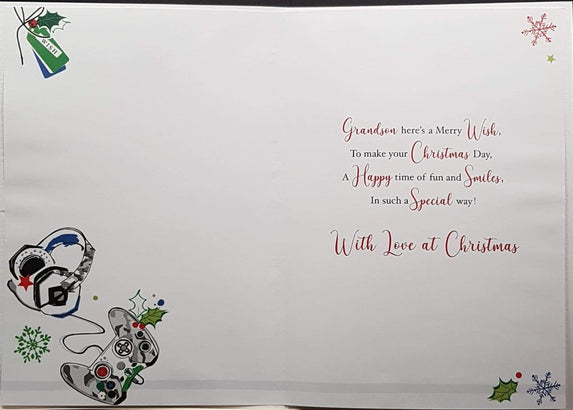 WISH
Grandson here's a Merry Wish,
To make your Christmas Day,
A Happy time of fun and Smiles,
In such a Special way!
With Love at Christmas